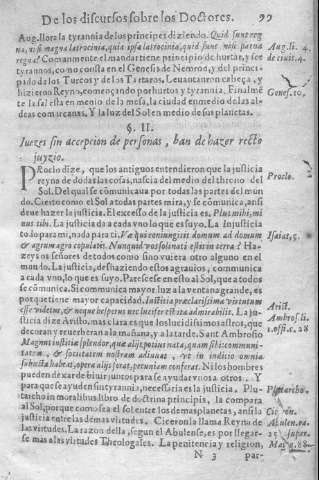 De los discursos sobre los Doctores. 99
Aug. llora la tyrannia de los principes diziendo. Quid sunt reg
na, nisi magna latrocinia, quia ipsa latrocinia, quid sunt nisi parua
regna? Comunmente el mandar tiene principio de hurtar, y ser
tyrannos, como consta en el Genesis de Nemrod, y del princi-
pado de los Turcos y de los Tartaros. Leuantaron cabeça, y
hizieron Reyno, començando por hurtos y tyrannia. Finalmē
te la sal esta en medio de la mesa, la ciudad en medio de las al-
deas comarcanas. Y la luz del Sol en medio de sus planetas.
§. II.
Iuezes sin accepcion de personas, han de hazer recto
juyzio.
PRoclo dize, que los antiguos entendieron que la justicia
reyna de dodas las cosas, nascia del medio del throno del
Sol. Del qual se cōmunicaua por todas las partes del mun
do. Cierto como el Sol a todas partes mira, y se cōmunica, ansi
deue hazer la justicia. El excesso de la justicia es. Plus mihi, mi
nus tibi. La justicia da a cada vno lo que es suyo, La Injusticia
todo para mi, nada para ti. Væ qui coniungitis domum ad domum
& agrum agro copulatis. Nunquid vos soli habitabitis in terra? Ha-
zeys os señores de todos como sino vuiera otro alguno en el
mundo. La justicia, deshaziendo estos agrauios, communica
a cada vno, lo que es suyo. Parescese en esto al Sol, que a todos
se cōmunica. Si communica mayor luz a la ventana grande, es
porque tiene mayor capacidad. Iustitia præclarissima virtutum
esse videtur, & neque hesperus nec lucifer est ita admirabilis. La ju-
sticia dize Aristo. mas clara es que los luzidissimos astros, que
decoran y reuerberan a la mañana, y a la tarde. Sant Ambrosio
Magnus iustitiæ splendor, quæ alijs potius nata, quam sibi communi-
tatem, & societatem nostram adiuuat, vt in inditio omnia
subiecta habeat, opem alijs ferat, pecuniam conferat. Ni los hombres
pueden dexar de biuir juntos para se ayudar vnos a otros. Y
para que se ayuden sin tyrannia, necessaria es la justicia. Plu-
tarcho in moralibus libro de doctrina principis, la compara
al Sol, porque como sea el sol entre los demas planetas, ansi la
justicia entre las demas virtudes. Ciceron la llama Reyna de
las virtudes. La razon della, segun el Abulense, es por llegar-
se mas a las virtudes Theologales. La penitencia y religion,
N 3 par-
Aug. li. 4.
de ciuit. 4.
Genes. 10.
Proclo.
Isaiæ, 5.
Arist.
Ambros. li.
1. offi. c. 28
Plutarcho.
Ciceron.
Abulen.